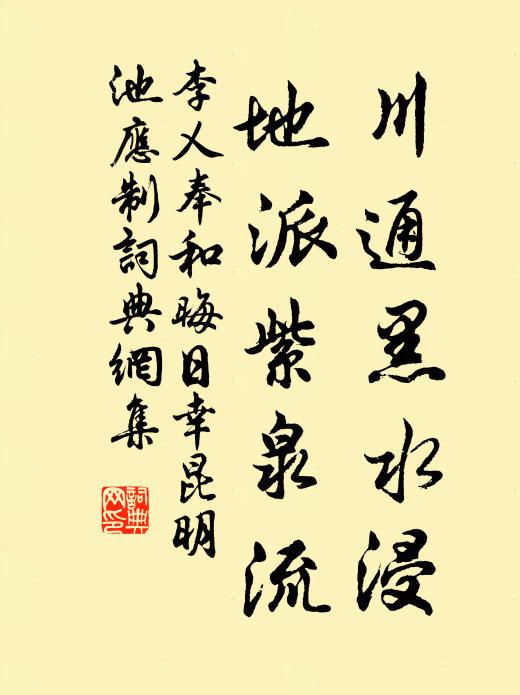 川通黑水浸
地派紫泉流
李乂奉和晦日幸昆明
池應制詞典網集
詞典
网印